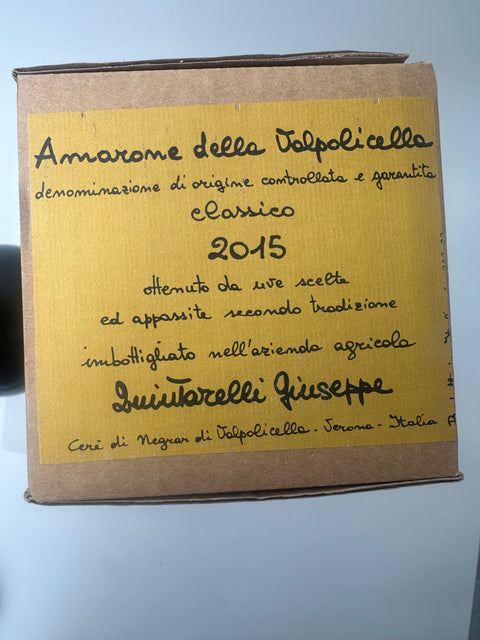 Amarone della Valpolicella
denominazione di origine controllata e garantita
classico
2015
ottenuto da uve scelte
ed appassite secondo tradizione
imbottigliato nell'azienda agricola
Quintarelli Giuseppe
Cerè di Negrar di Valpolicella - Verona - Italia